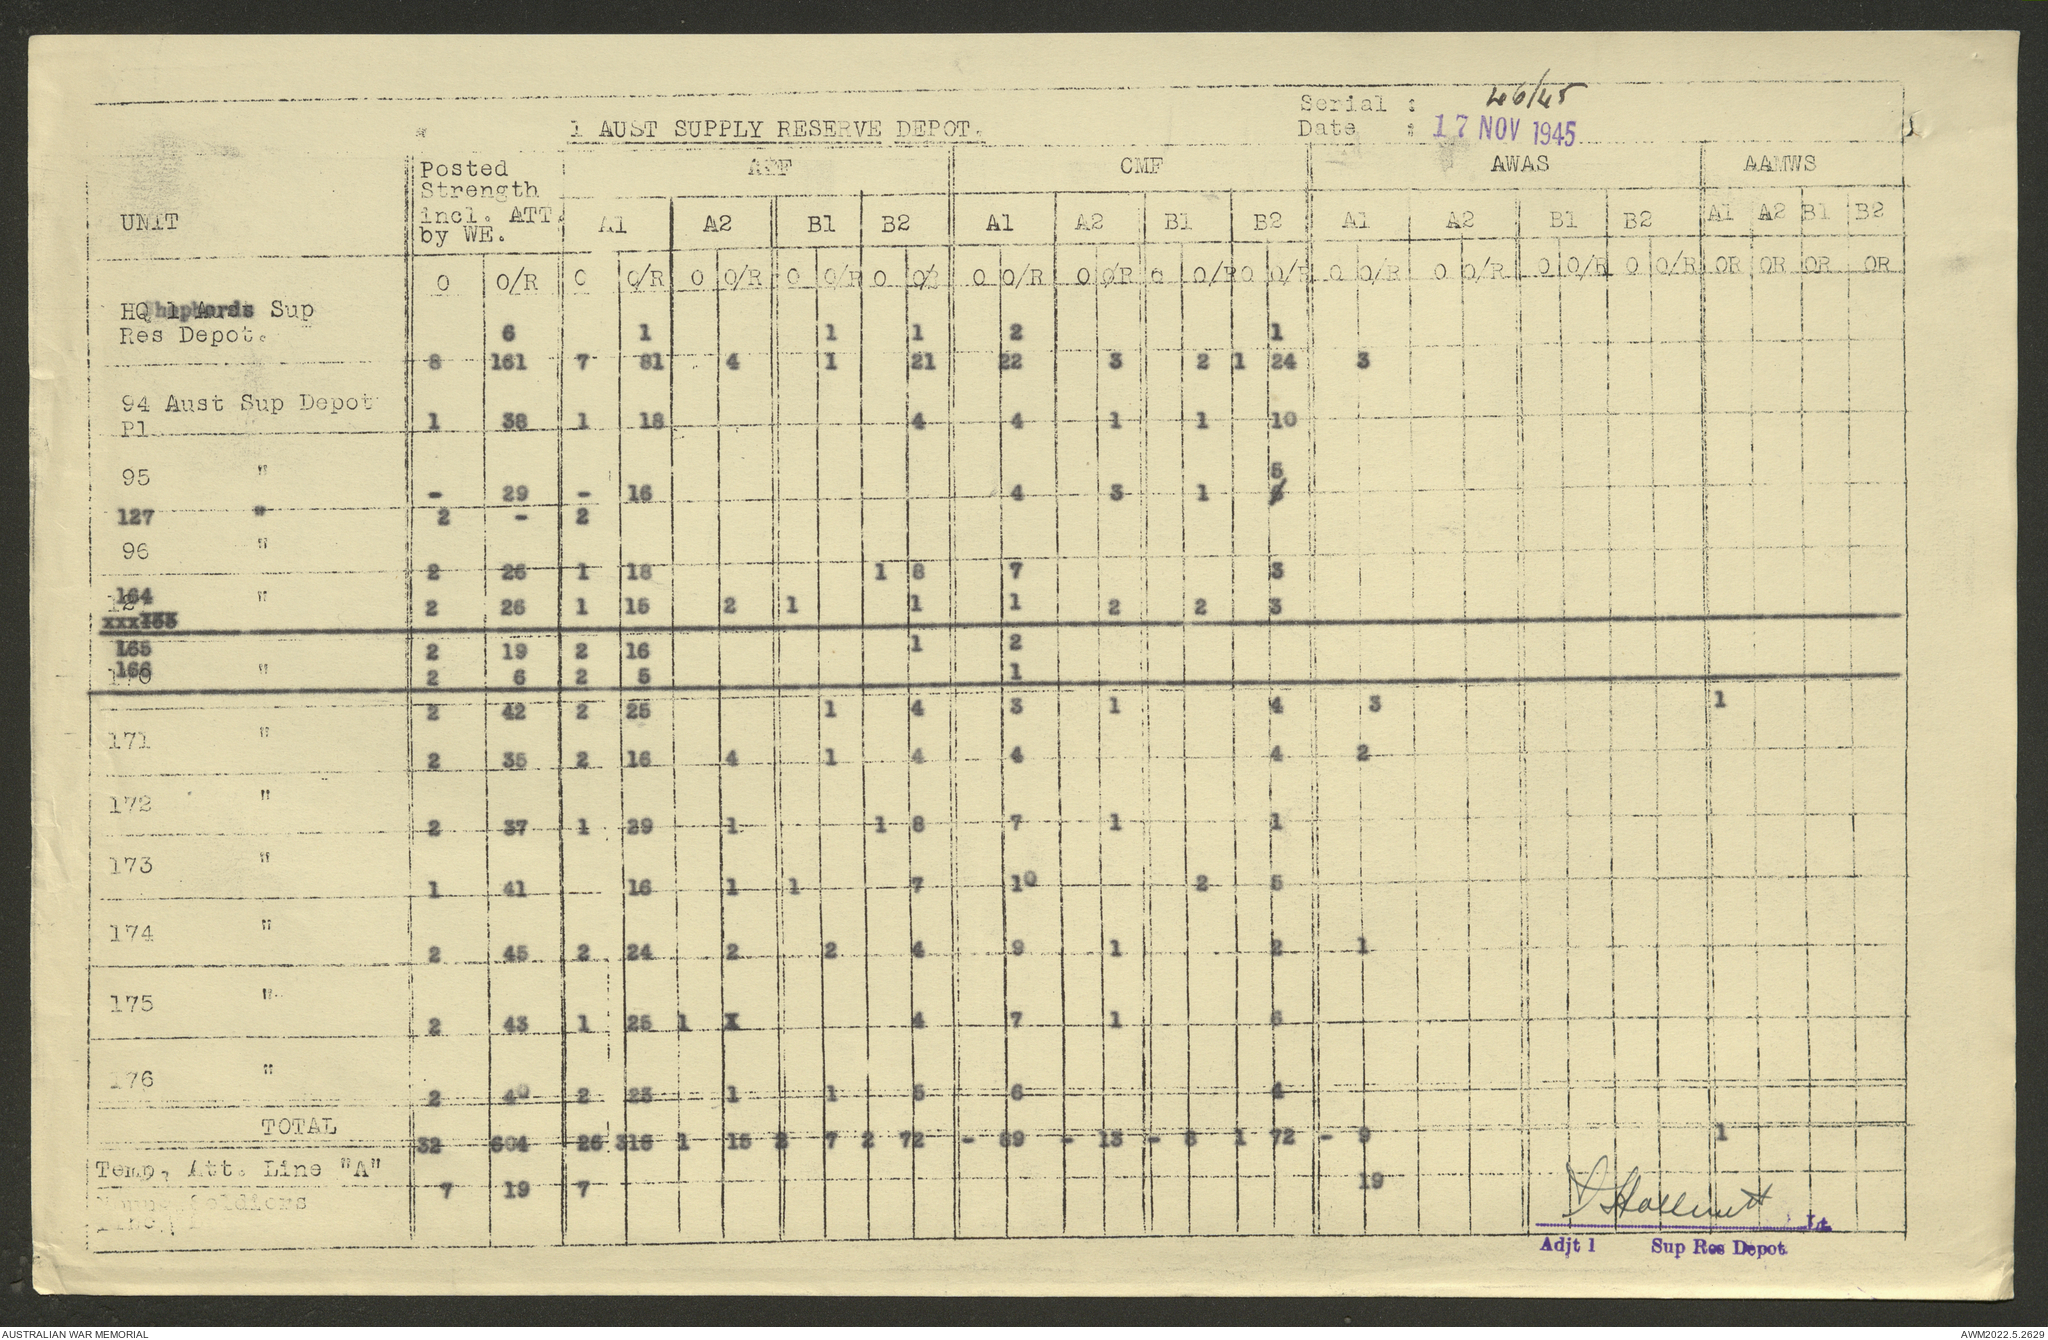 Serial : 46/45
1 AUST SUPPLY RESERVE DEPOT.
Date : 17 NOV 1945
UNIT Posted Strength incl. ATT by WE. AIF CMF AWAS AAMWS
A1 A2 B1 B2 A1 A2 B1 B2 A1 A2 B1 B2 A1 A2 B1 B2
O O/R O O/R O O/R O O/R O O/R O O/R O O/R O O/R O O/R O O/R O O/R O O/R O O/R OR OR OR OR
HQ Sup
Res Depot. 6 1 1 1 2 1
8 161 7 81 4 1 21 22 3 2 1 24 3
94 Aust Sup Depot
Pl 1 38 1 18 4 4 1 1 10
95 " 5
- 29 - 16 4 3 1
127 " 2 - 2
96 "
2 26 1 18 1 8 7 3
164 " 2 26 1 15 2 1 1 1 2 2 3
xxx
165 2 19 2 16 1 2
166 " 2 6 2 5 1
2 42 2 25 1 4 3 1 4 3 1
171 "
2 35 2 16 4 1 4 4 4 2
172 "
2 37 1 29 1 1 8 7 1 1
173 "
1 41 16 1 1 7 10 2 5
174 "
2 45 2 24 2 2 4 9 1 2 1
175 "
2 43 1 25 1 X 4 7 1 6
176 "
2 40 2 23 1 1 5 6 4
TOTAL
32 604 26 316 1 15 2 7 2 72 - 89 - 13 - 8 1 72 - 9 1
Temp. Att. Line "A"
7 19 7 19
Soldiers
Lt
Adjt 1 Sup Res Depot
AUSTRALIAN WAR MEMORIAL AWM2022.5.2629